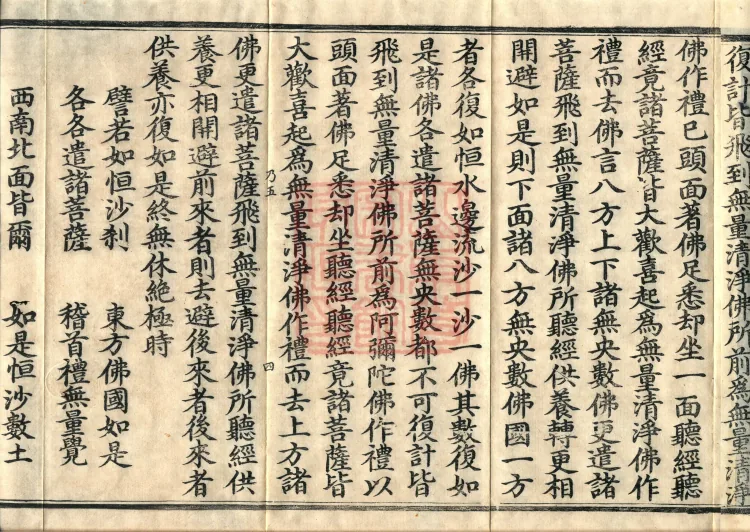 復計皆飛到無量清淨佛所前為無量清淨
佛作禮已頭面著佛足悉却坐一面聽經聽
經竟諸菩薩皆大歡喜起為無量清淨佛作
禮而去佛言八方上下諸無央數佛更遣諸
菩薩飛到無量清淨佛所聽經供養轉更相
開避如是則下面諸八方無央數佛國一方
者各復如恒水邊流沙一沙一佛其數復如
是諸佛各遣諸菩薩無央數都不可復計皆
飛到無量清淨佛所前為阿彌陀佛作禮以
頭面著佛足悉却坐聽經聽經竟諸菩薩皆
大歡喜起為無量清淨佛作禮而去上方諸
乃五 四
佛更遣諸菩薩飛到無量清淨佛所聽經供
養更相開避前來者則去避後來者後來者
供養亦復如是終無休絕極時
譬若如恒沙刹 東方佛國如是
各各遣諸菩薩 稽首禮無量覺
西南北面皆爾 如是恒沙數土